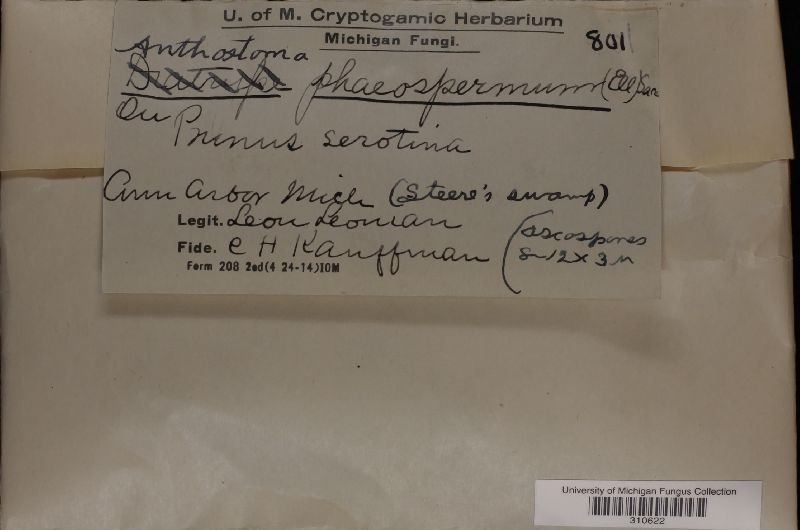 U. of M. Cryptogamic Herbarium
Michigan Fungi.
801
Anthostoma
phaeospermum (Ell) Sacc
On Prunus serotina
Ann Arbor Mich (Steere's swamp)
Legit. Leon Leonian
Fide. C H Kauffman
(ascospores
8-12 x 3 µ
Form 208 2ed(4 24-14)10M
University of Michigan Fungus Collection
310622